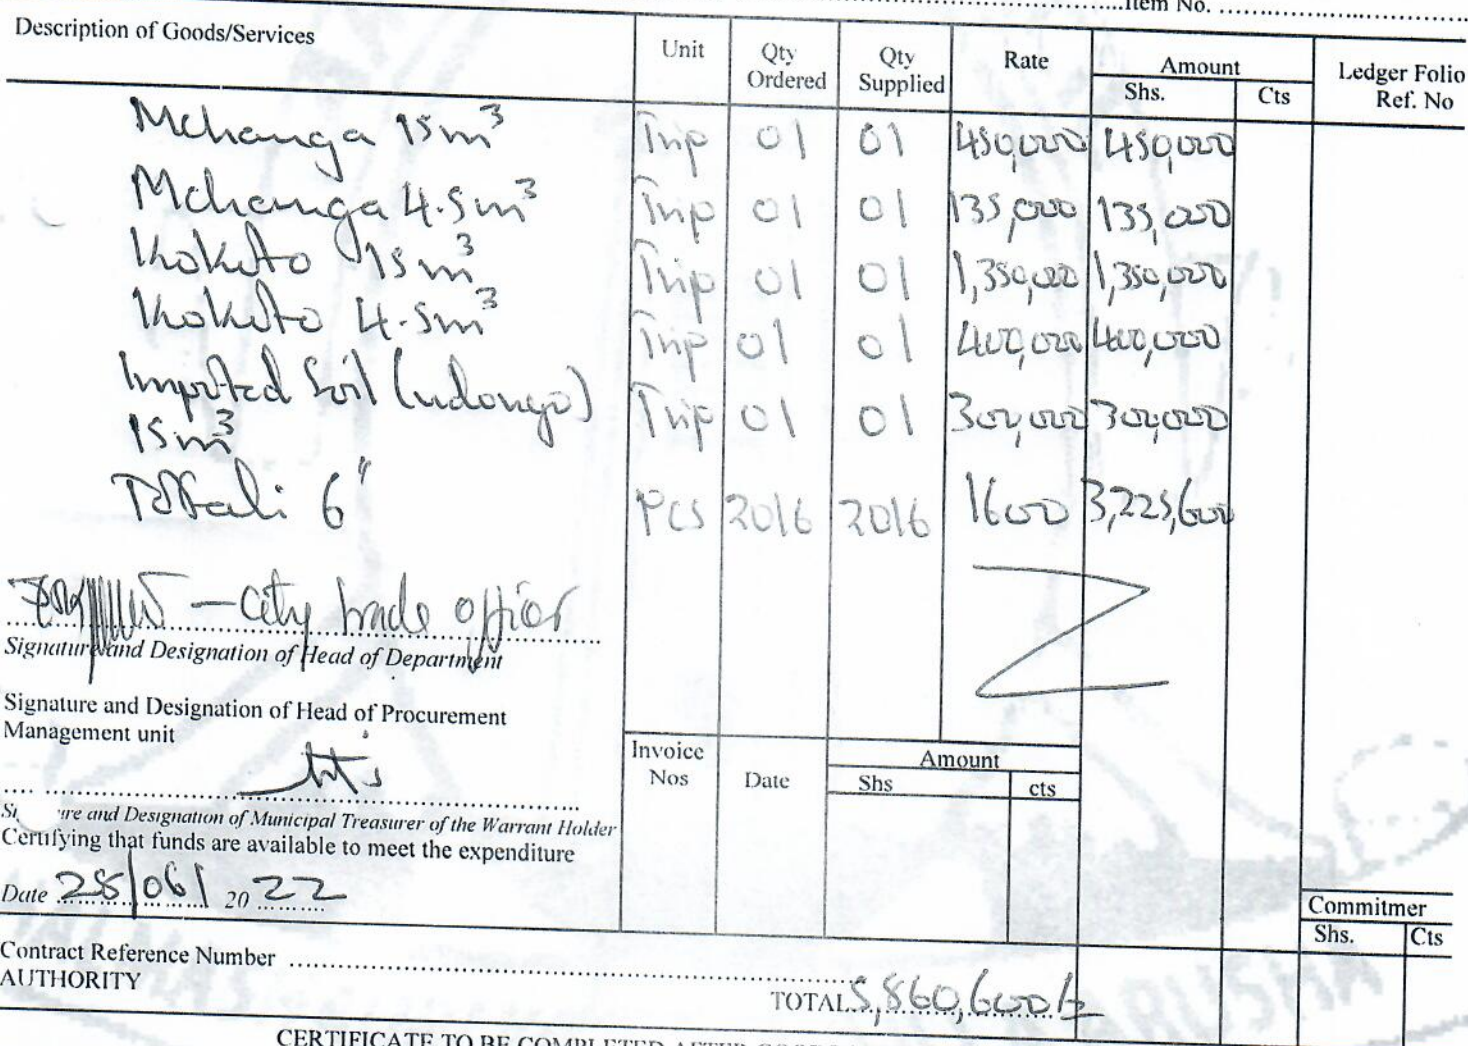 Item No.
Description of Goods/Services Unit Qty Ordered Qty Supplied Rate Amount Shs. Cts Ledger Folio Ref. No
Mchanga 15m³ Trip 01 01 450,000 450,000
Mchanga 4.5m³ Trip 01 01 135,000 135,000
Kokoto 15m³ Trip 01 01 1,350,000 1,350,000
Kokoto 4.5m³ Trip 01 01 400,000 400,000
Imported Soil (udongo) Trip 01 01 300,000 300,000
15m³
Tofali 6" PCS 2016 2016 1600 3,225,600
– City trade officer
Signature and Designation of Head of Department
Signature and Designation of Head of Procurement
Management unit
Invoice Nos Date Amount Shs cts
re and Designation of Municipal Treasurer of the Warrant Holder
Certifying that funds are available to meet the expenditure
Date 28/06/ 2022
Commitmer
Shs. Cts
Contract Reference Number
AUTHORITY
TOTAL 5,860,600/=
ARUSHA
CERTIFICATE TO BE COMPLETED AFTER